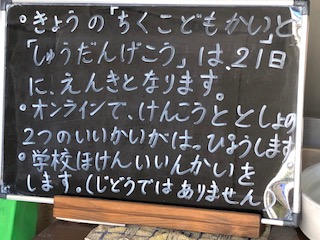 ・きょうの「ちくこどもかい」と
「しゅうだんげこう」は、21日
に、えんきとなります。
・オンラインで、けんこうととしょの
2つのいいかいがはっぴょうします
・学校ほけんいいんかいを
します。(じどうではありません